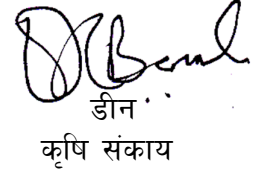 डीन
कृषि संकाय